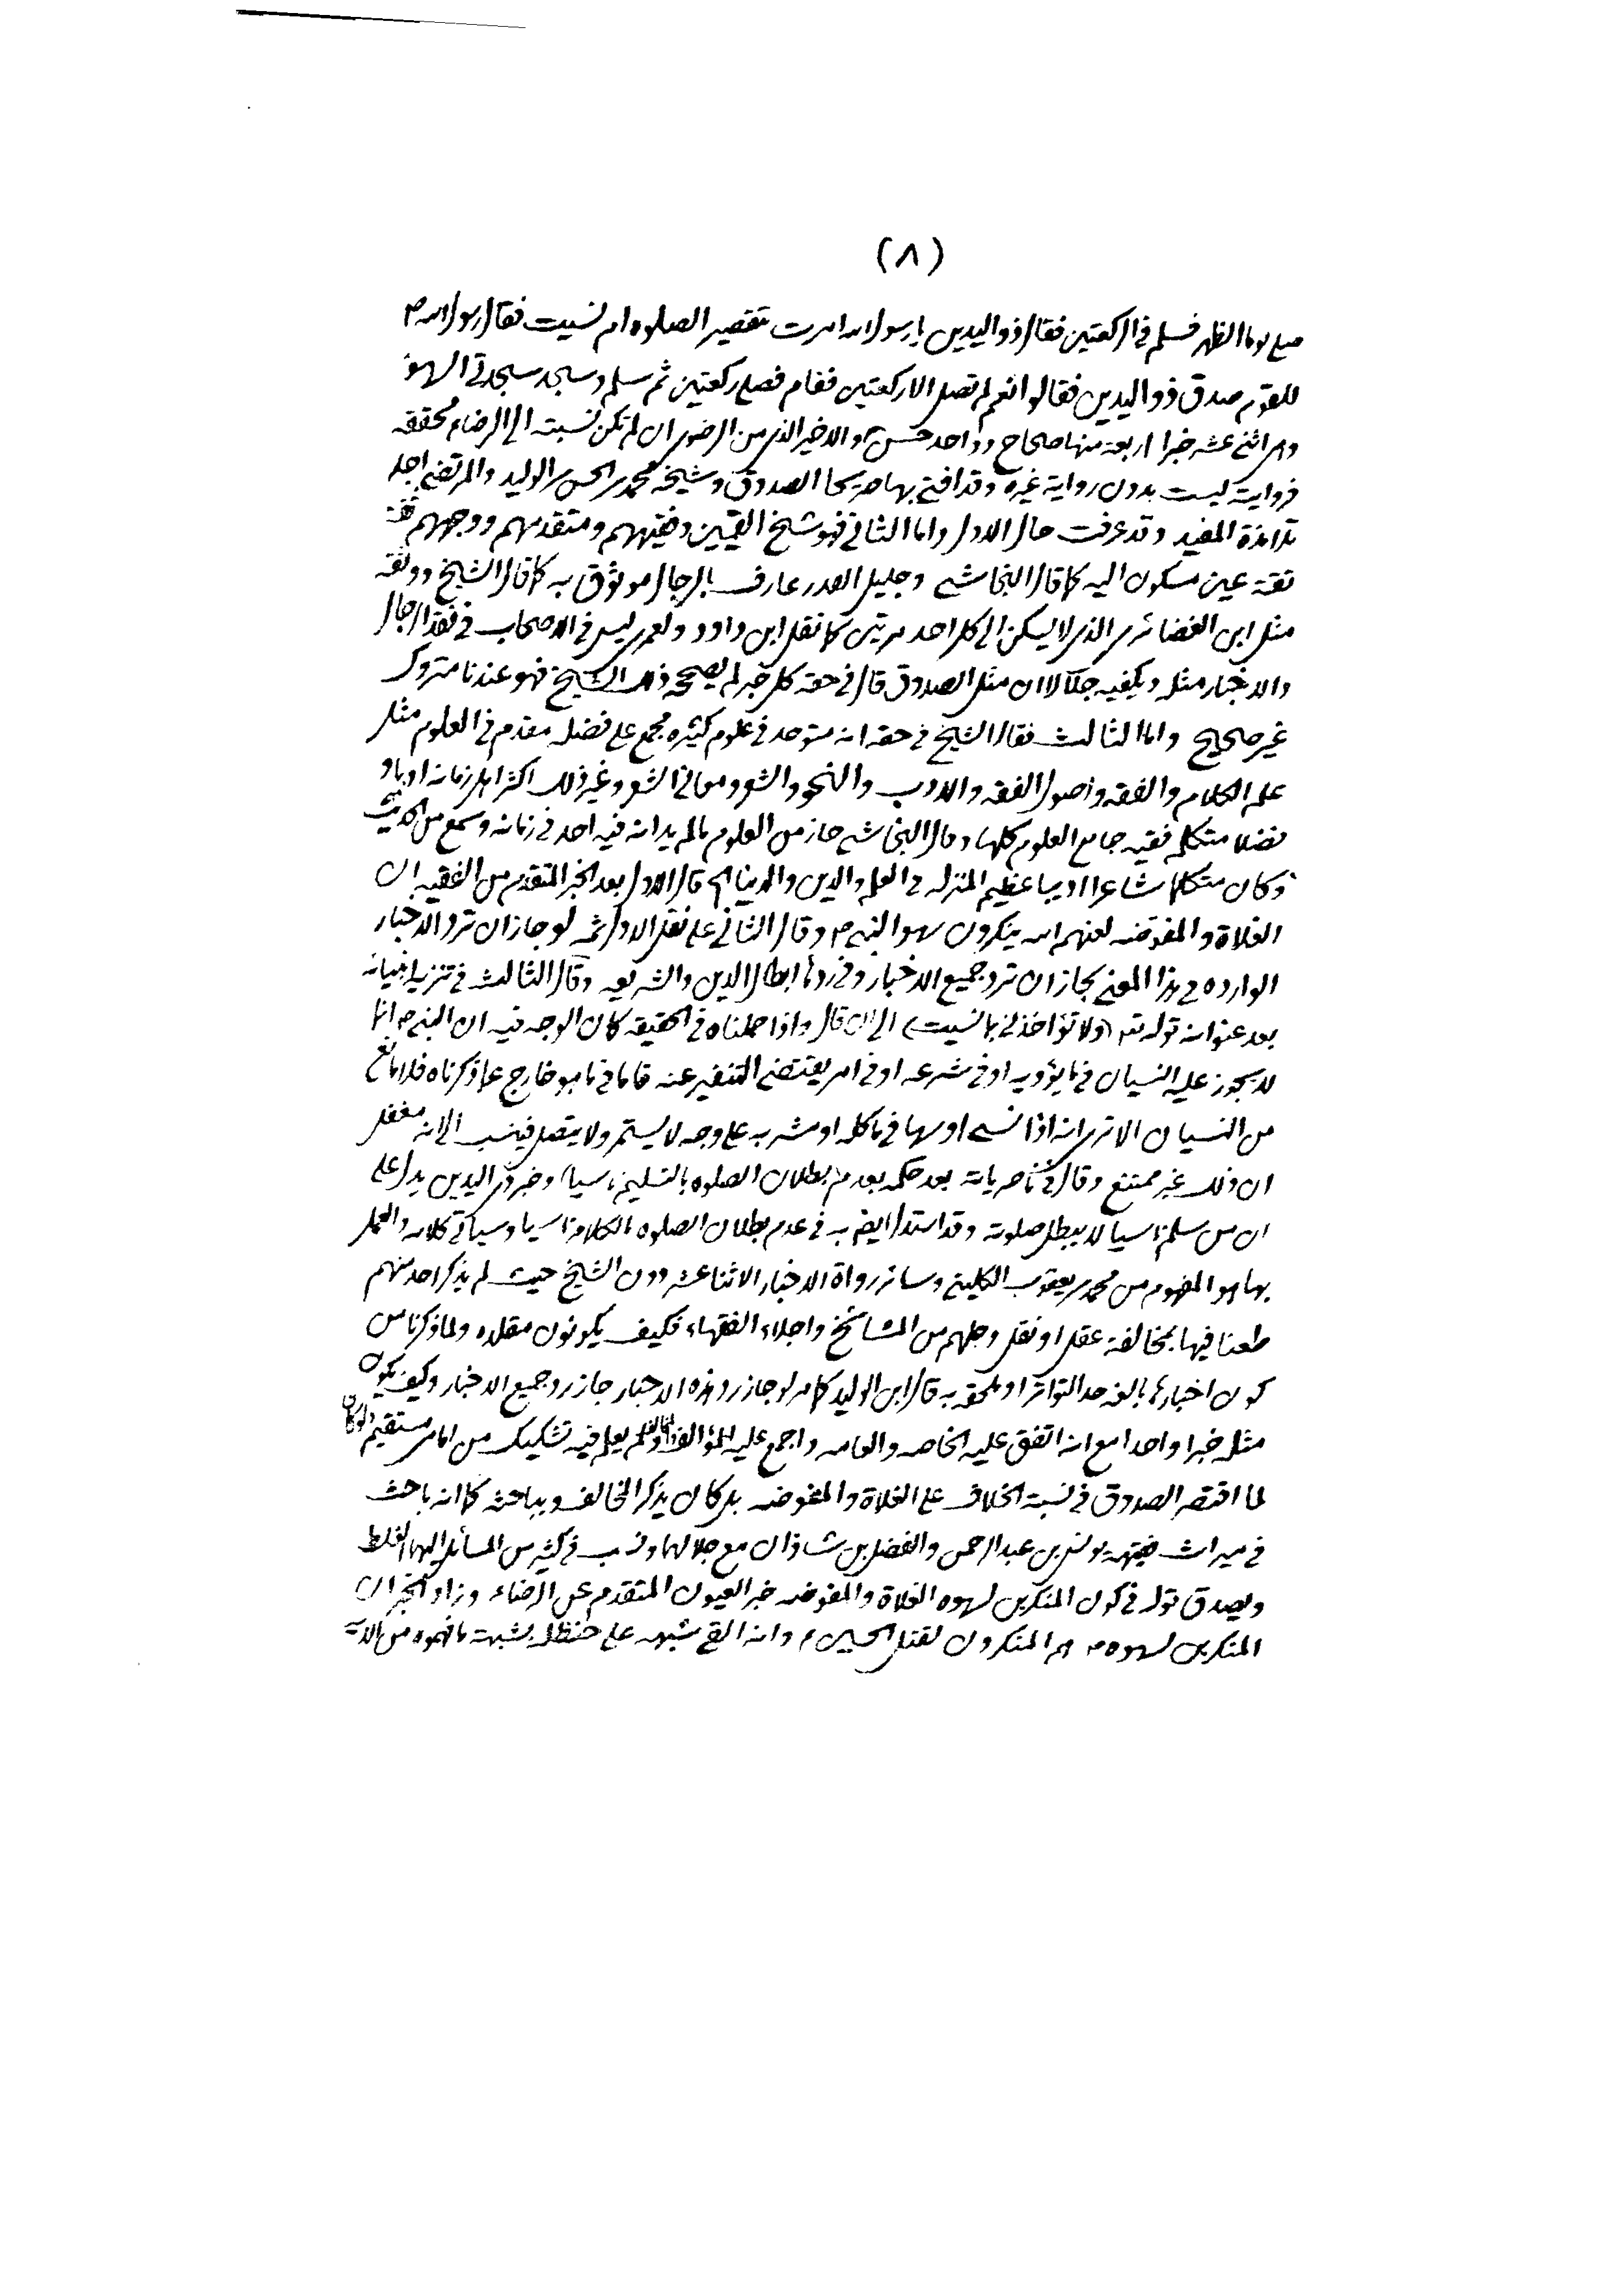 (٨)
صلى يوما الظهر فسلم في الركعتين فقال ذو اليدين يا رسول الله امرت بتقصير الصلوه ام نسيت فقال رسول الله ص
للقوم صدق ذو اليدين فقالوا نعم لم تصل الا ركعتين فقام فصلى ركعتين ثم سلم وسجد سجدتي السهو
وهي اثني عشر خبرا اربعة منها صحاح وواحد حسن والاخير الذي من الرضوي ان لم تكن نسبته الى الرضاء محققه
فروايته ليست بدون رواية غيره وقد افتى بها صريحا الصدوق وشيخه محمد بن الحسن بن الوليد والمرتضى اجل
تلامذة المفيد وقد عرفت حال الاول واما الثاني فهو شيخ القميين وفقيههم ومتقدمهم ووجههم ثقة
ثقة عين مسكون اليه كما قال النجاشي وجليل القدر عارف بالرجال موثوق به كما قال الشيخ ووثقه
مثل ابن الغضائري الذي لا يسكن الى كل احد مرتين كما نقل ابن داود ولعمري ليس في الاصحاب في نقد الرجال
والاخبار مثله ويكفيه جلالا ان مثل الصدوق قال في حقه كل خبر لم يصححه ذلك الشيخ فهو عندنا متروك
غير صحيح واما الثالث فقال الشيخ في حقه انه متوحد في علوم كثيره مجمع على فضله مقدم في العلوم مثل
علم الكلام والفقه واصول الفقه والادب والنحو والشعر ومعاني الشعر وغير ذلك اكثر اهل زمانه ادبا و
فضلا متكلم فقيه جامع العلوم كلها وقال النجاشي حاز من العلوم ما لم يدانه فيه احد في زمانه وسمع من الحديث
وكان متكلما شاعرا اديبا عظيم المنزله في العلم والدين والدنيا قال الاول بعد الخبر المتقدم من الفقيه ان
الغلاة والمفوضه لعنهم الله ينكرون سهو النبي ص وقال الثاني على نقل الاول ثمه لو جاز ان ترد الاخبار
الوارده في هذا المعنى لجاز ان ترد جميع الاخبار وفي ردها ابطال الدين والشريعه وقال الثالث في تنزيه انبيائه
بعد عنوانه قوله تع (ولا تؤاخذني بما نسيت) الى ان قال واذا حملناه في الحقيقه كان الوجه فيه ان النبي ص انما
لا يجوز عليه النسيان في ما يؤديه او في شرعه او في امر يقتضى التنفير عنه فاما في ما هو خارج عما ذكرناه فلا مانع
من النسيان الا ترى انه اذا نسي او سها في مأكله او مشربه على وجه لا يستمر ولا يتصل فينسب الى انه مغفل
ان ذلك غير ممتنع وقال في ناصرياته بعد حكمه بعدم بطلان الصلوه بالتسليم ناسيا وخبر ذي اليدين يدل على
ان من سلم ناسيا لا يبطل صلوته وقد استدل ايضا به في عدم بطلان الصلوه بالكلام ناسيا وسياتي كلامه والعمل
بها هو المفهوم من محمد بن يعقوب الكليني وسائر رواة الاخبار الاثنا عشر دون الشيخ حيث لم يذكر احد منهم
طعنا فيها بمخالفة عقل او نقل وجلهم من المشائخ واجلاء الفقهاء فكيف يكونون مقلده ولما ذكرنا من
كون اخبارها بالغه حد التواتر او ملحقه به قال ابن الوليد كما مر لو جاز رد هذه الاخبار جاز رد جميع الاخبار وكيف يكون
مثله خبرا واحدا مع انه اتفق عليه الخاصه والعامه واجمع عليه المؤالف والمخالف ولم يعلم فيه تشكيك من امامى مستقيم ولو كان
لما اقتصر الصدوق في نسبة الخلاف على الغلاة والمفوضه بل كان يذكر المخالف ويباحثه كما انه باحث
في ميراث فقيهه يونس بن عبدالرحمن والفضل بن شاذان مع جلالهما ونسب في كثير من المسائل اليهما الغلط
ويصدق قوله في كون المنكرين لسهوه الغلاة والمفوضه خبر العيون المتقدم عن الرضاء وزاد الخبر ان
المنكرين لسهوه ص هم المنكرون لقتل الحسين ع وانه القى شبهه على حنظلة بشبهة ما فهموه من الآية